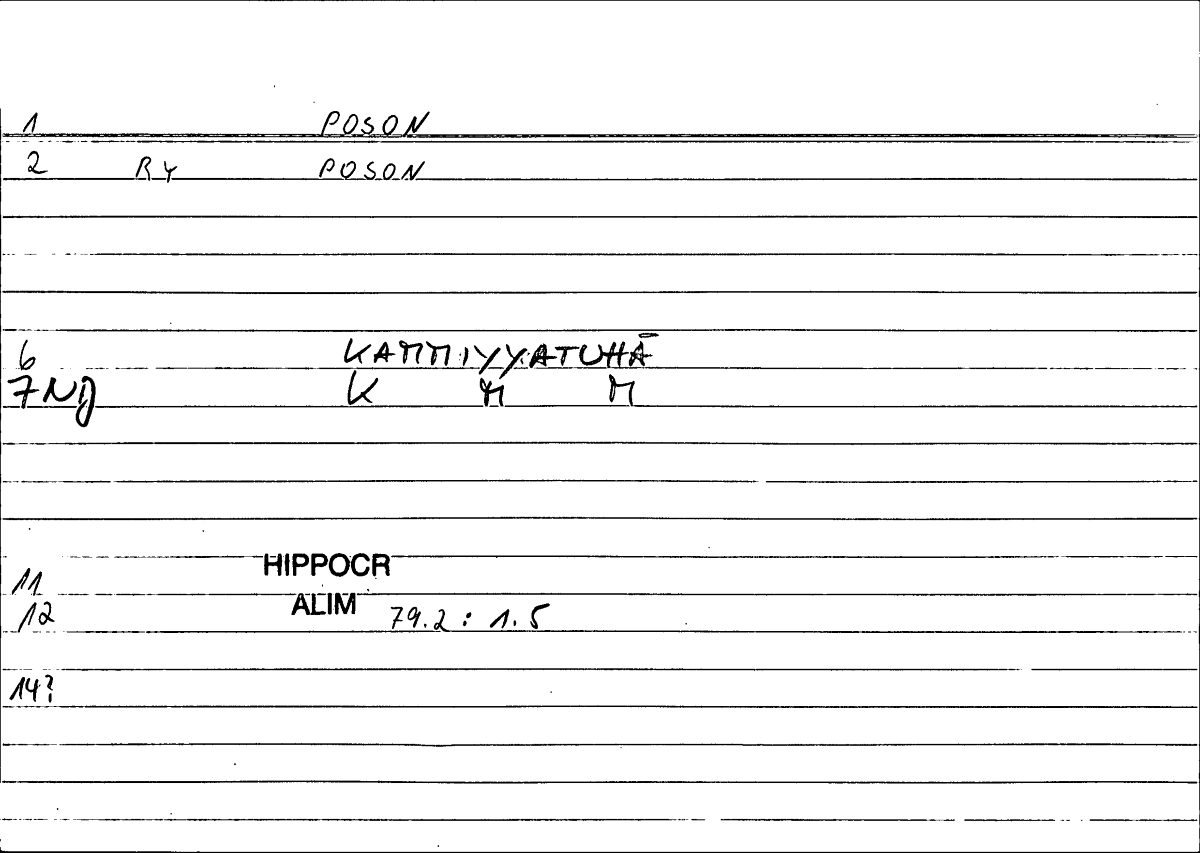 1 POSON
2 RY POSON
6 KAMMIYYATUHĀ
7ND K M M
11 HIPPOCR
12 ALIM 79.2 : 1.5
14?